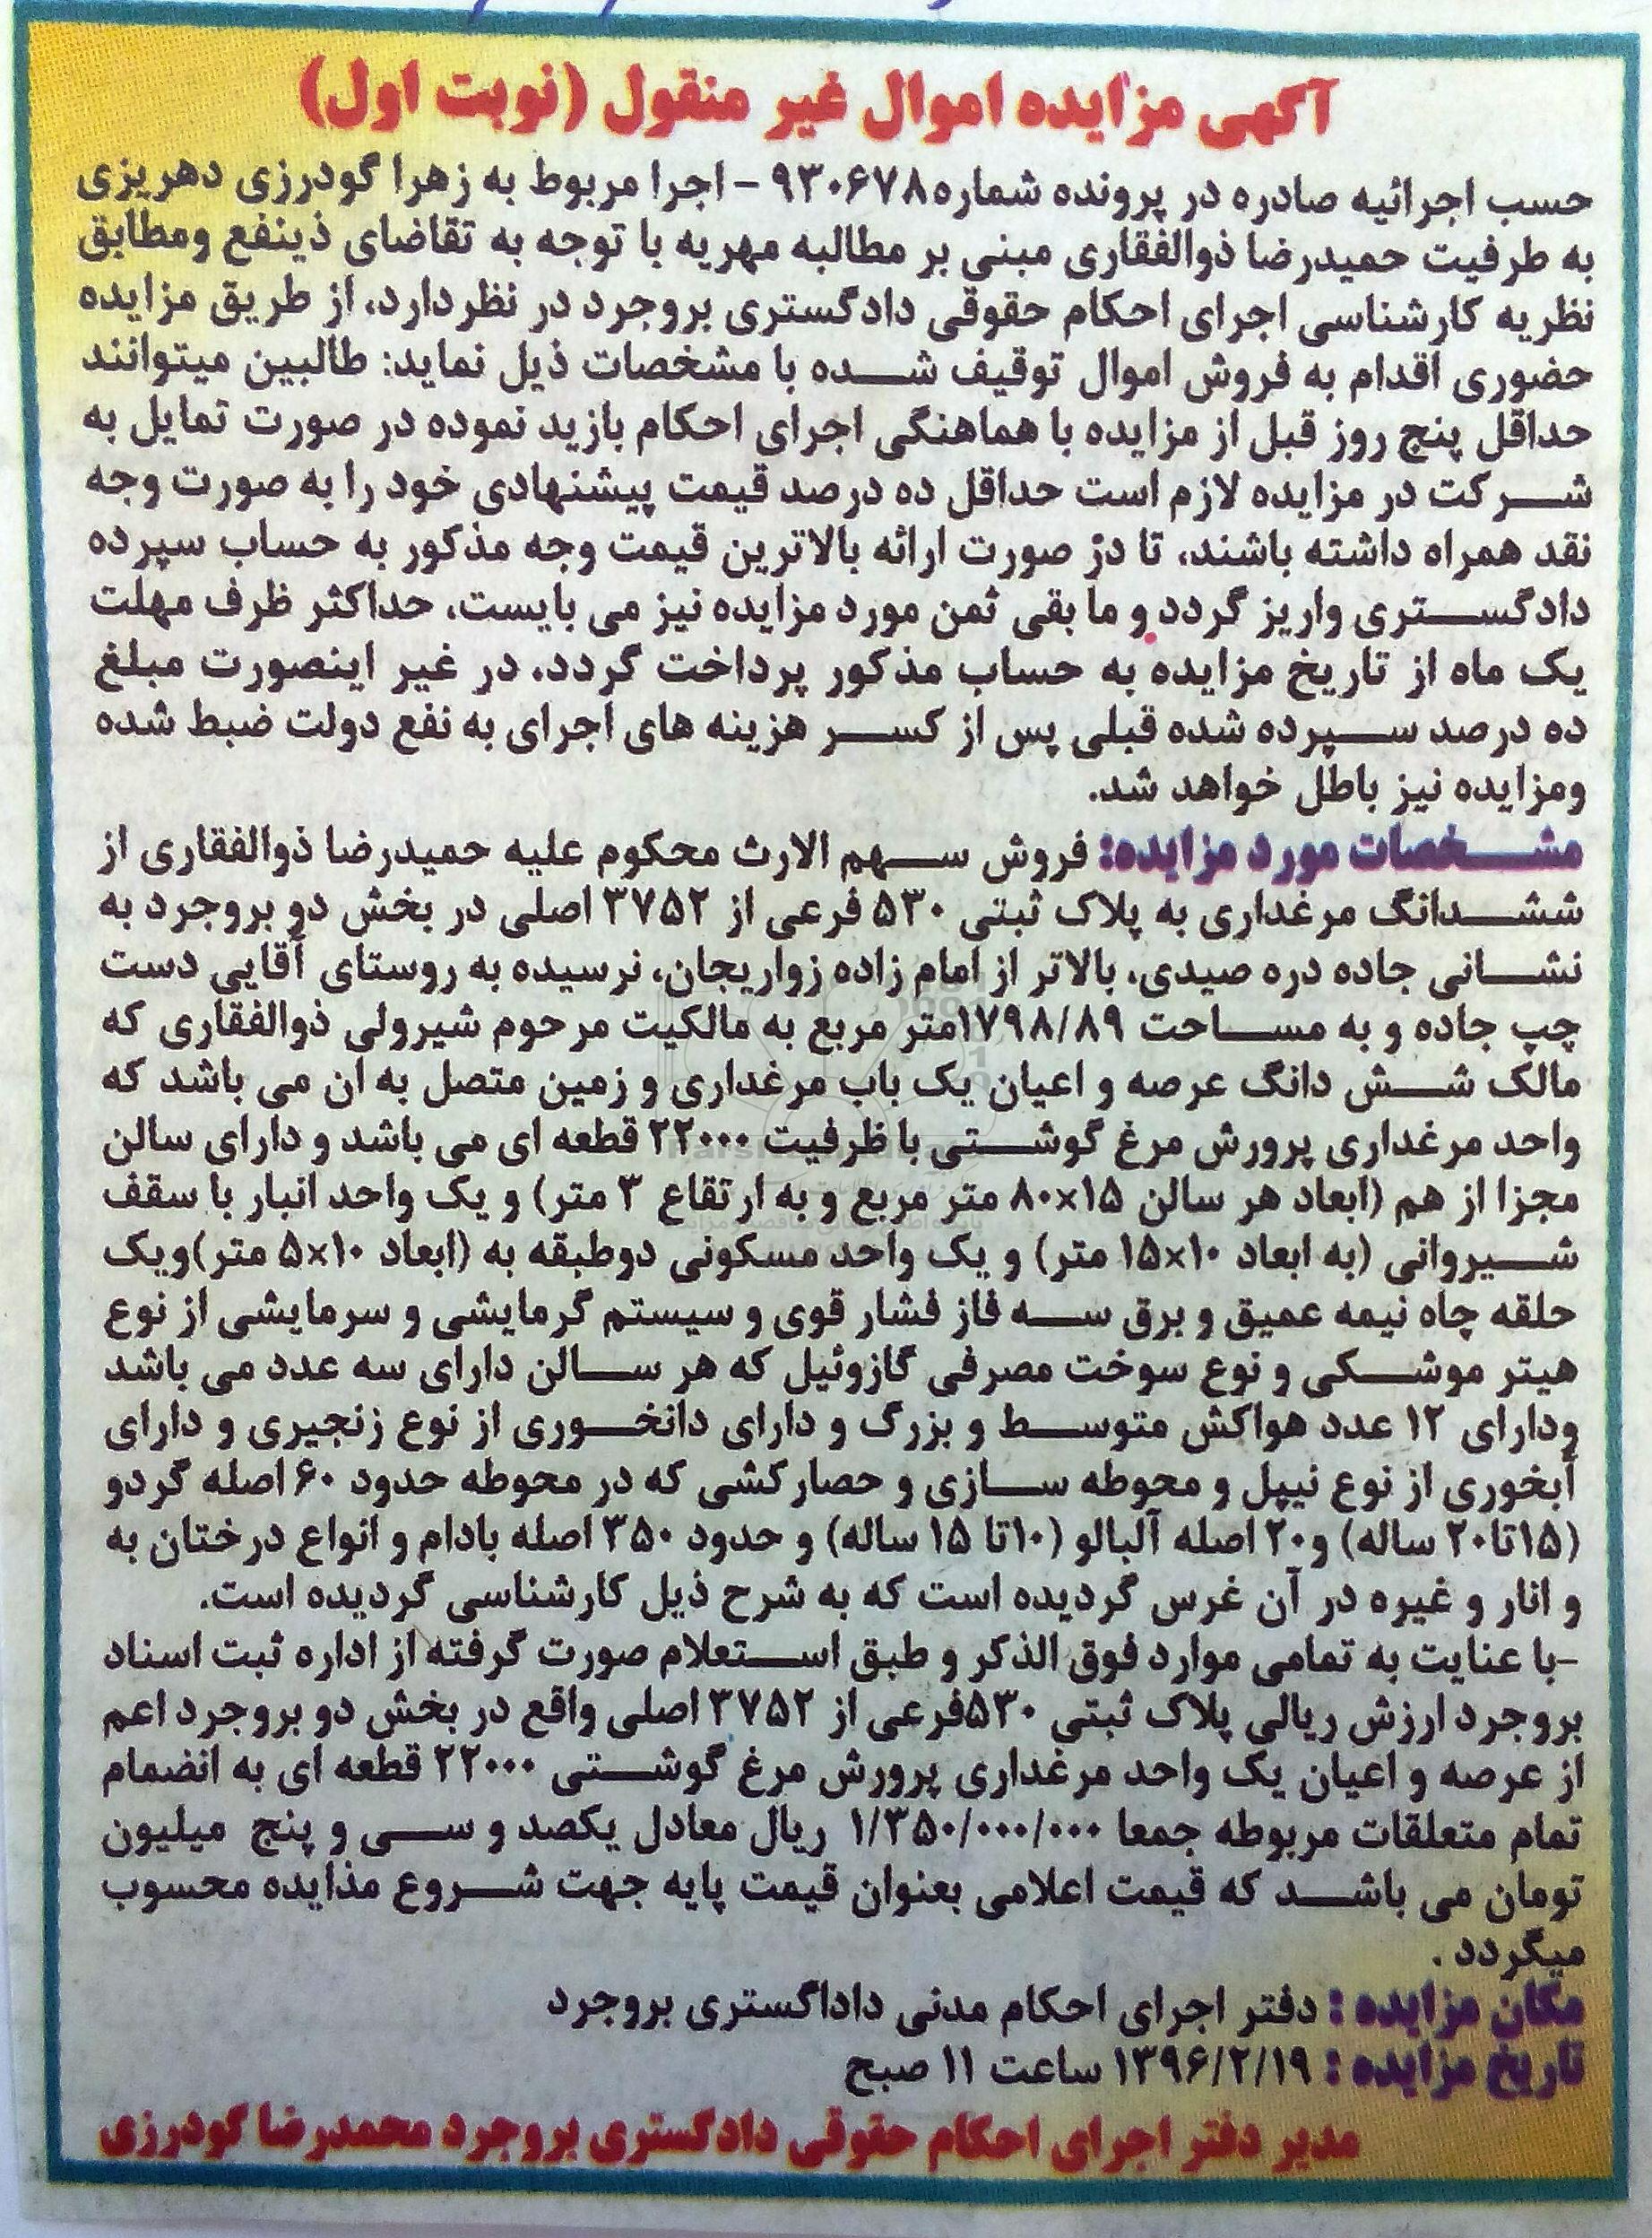 آگهی مزایده اموال غیر منقول (نوبت اول)
حسب اجرائیه صادره در پرونده شماره ۹۳۰۶۷۸ - اجرا مربوط به زهرا گودرزی دهریزی
به طرفیت حمیدرضا ذوالفقاری مبنی بر مطالبه مهریه با توجه به تقاضای ذینفع ومطابق
نظریه کارشناسی اجرای احکام حقوقی دادگستری بروجرد در نظر دارد، از طریق مزایده
حضوری اقدام به فروش اموال توقیف شده با مشخصات ذیل نماید: طالبین میتوانند
حداقل پنج روز قبل از مزایده با هماهنگی اجرای احکام بازید نموده در صورت تمایل به
شرکت در مزایده لازم است حداقل ده درصد قیمت پیشنهادی خود را به صورت وجه
نقد همراه داشته باشند، تا در صورت ارائه بالاترین قیمت وجه مذکور به حساب سپرده
دادگستری واریز گردد و ما بقی ثمن مورد مزایده نیز می بایست، حداکثر ظرف مهلت
یک ماه از تاریخ مزایده به حساب مذکور پرداخت گردد، در غیر اینصورت مبلغ
ده درصد سپرده شده قبلی پس از کسر هزینه های اجرای به نفع دولت ضبط شده
ومزایده نیز باطل خواهد شد.
مشخصات مورد مزایده: فروش سهم الارث محکوم علیه حمیدرضا ذوالفقاری از
ششدانگ مرغداری به پلاک ثبتی ۵۳۰ فرعی از ۳۷۵۲ اصلی در بخش دو بروجرد به
نشانی جاده دره صیدی، بالاتر از امام زاده زواریجان، نرسیده به روستای آقایی دست
چپ جاده و به مساحت ۱۷۹۸/۸۹متر مربع به مالکیت مرحوم شیرولی ذوالفقاری که
مالک شش دانگ عرصه و اعیان یک باب مرغداری و زمین متصل به ان می باشد که
واحد مرغداری پرورش مرغ گوشتی با ظرفیت ۲۲۰۰۰ قطعه ای می باشد و دارای سالن
مجزا از هم (ابعاد هر سالن ۱۵×۸۰ متر مربع و به ارتقاع ۳ متر) و یک واحد انبار با سقف
شیروانی (به ابعاد ۱۰×۱۵ متر) و یک واحد مسکونی دوطبقه به (ابعاد ۱۰×۵ متر)ویک
حلقه چاه نیمه عمیق و برق سه فاز فشار قوی و سیستم گرمایشی و سرمایشی از نوع
هیتر موشکی و نوع سوخت مصرفی گازوئیل که هر سالن دارای سه عدد می باشد
ودارای ۱۲ عدد هواکش متوسط و بزرگ و دارای دانخوری از نوع زنجیری و دارای
آبخوری از نوع نیپل و محوطه سازی و حصارکشی که در محوطه حدود ۶۰ اصله گردو
(۱۵تا۲۰ ساله) و۲۰ اصله آلبالو (۱۰تا ۱۵ ساله) و حدود ۳۵۰ اصله بادام و انواع درختان به
و انار و غیره در آن غرس گردیده است که به شرح ذیل کارشناسی گردیده است.
-با عنایت به تمامی موارد فوق الذکر و طبق استعلام صورت گرفته از اداره ثبت اسناد
بروجرد ارزش ریالی پلاک ثبتی ۵۳۰فرعی از ۳۷۵۲ اصلی واقع در بخش دو بروجرد اعم
از عرصه و اعیان یک واحد مرغداری پرورش مرغ گوشتی ۲۲۰۰۰ قطعه ای به انضمام
تمام متعلقات مربوطه جمعا ۱/۳۵۰/۰۰۰/۰۰۰ ریال معادل یکصد و سی و پنج میلیون
تومان می باشد که قیمت اعلامی بعنوان قیمت پایه جهت شروع مذایده محسوب
میگردد .
مکان مزایده : دفتر اجرای احکام مدنی داداگستری بروجرد
تاریخ مزایده : ۱۳۹۶/۲/۱۹ ساعت ۱۱ صبح
مدیر دفتر اجرای احکام حقوقی دادگستری بروجرد محمدرضا گودرزی